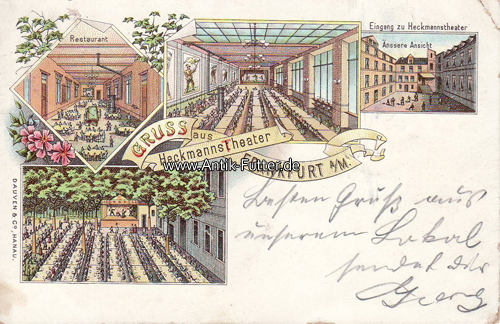 Restaurant
Eingang zu Heckmannstheater
Äussere Ansicht
GRUSS aus
HeckmannsTheater
FRANKFURT A/M.
www.Antik-Futter.de
DAUVEN & Co, HANAU.
Besten Gruß aus
unserem Lokal
sendet dir
Georg